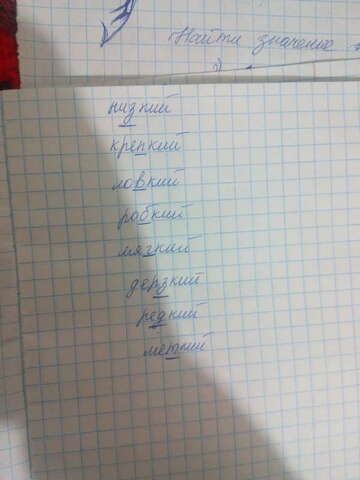 Найти значение
низкий
крепкий
ловкий
робкий
мягкий
дерзкий
редкий
меткий